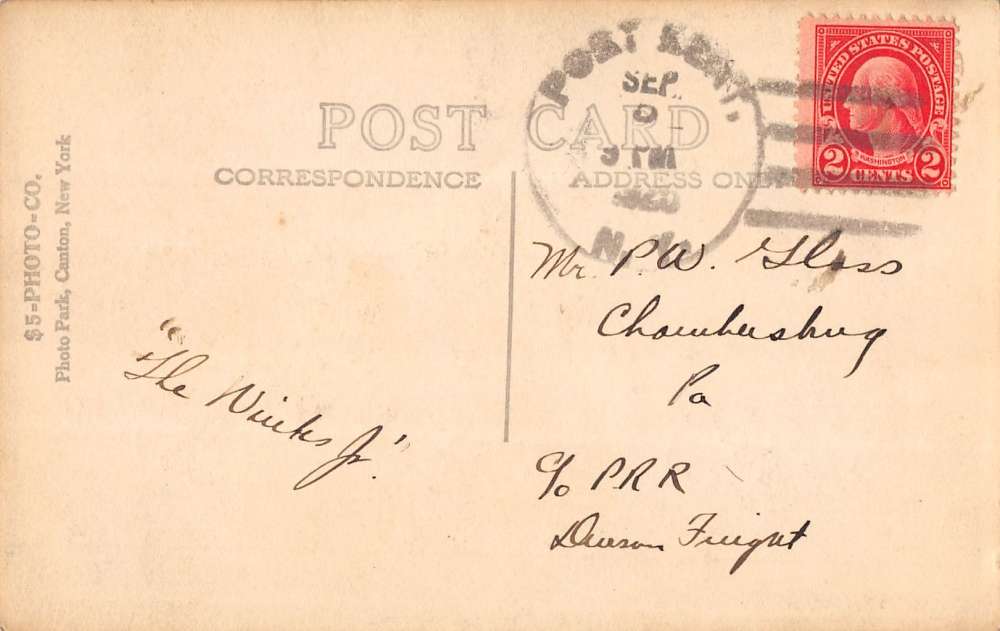 POST CARD
CORRESPONDENCE
ADDRESS ONLY
$5-PHOTO-CO.
Photo Park, Canton, New York
PORT KENT,
SEP
9 PM
N.Y.
UNITED STATES POSTAGE
WASHINGTON
2 CENTS 2
"The Winks Jr."
Mr. P.W. Glass
Chambersburg
Pa
c/o PRR
Freight